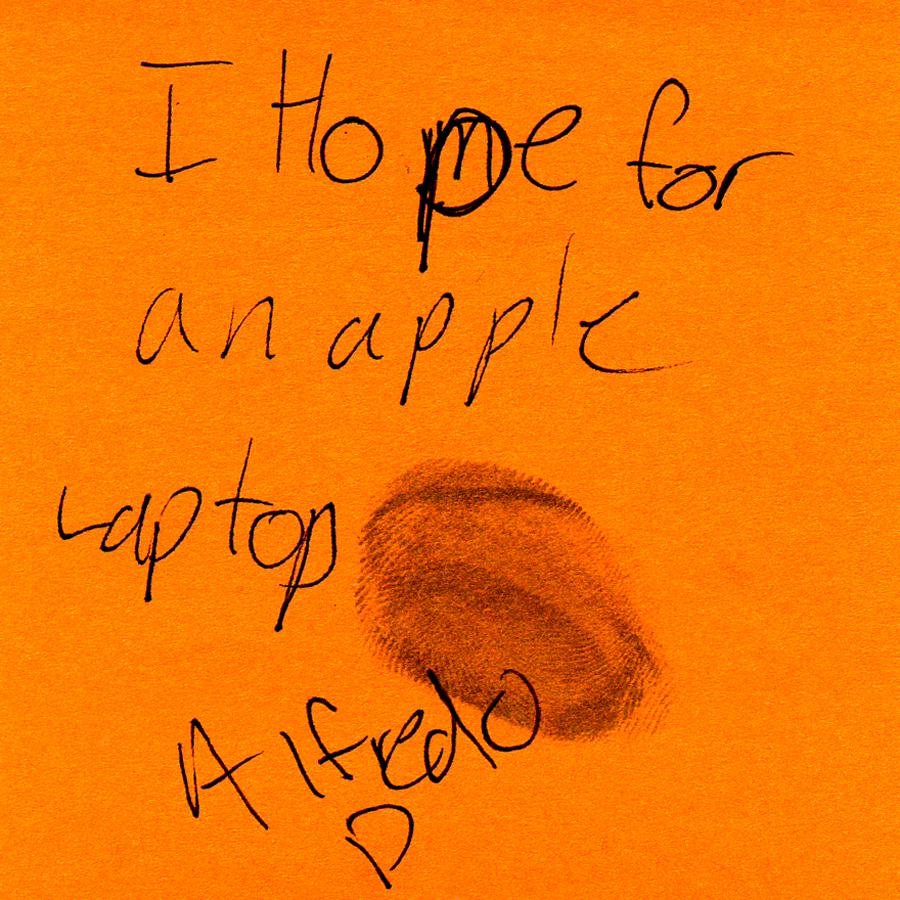 I Hope for
an apple
Laptop
Alfredo
D